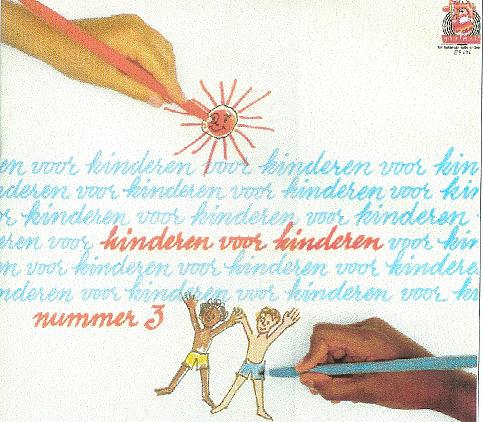 en voor kinderen voor kinderen voor kin
nderen voor kinderen voor kinderen voor kin
or kinderen voor kinderen voor kinderen
eren voor kinderen voor kinderen voor kin
en voor kinderen voor kinderen voor kinderen
nderen voor kinderen voor kinderen voor k
nummer 3